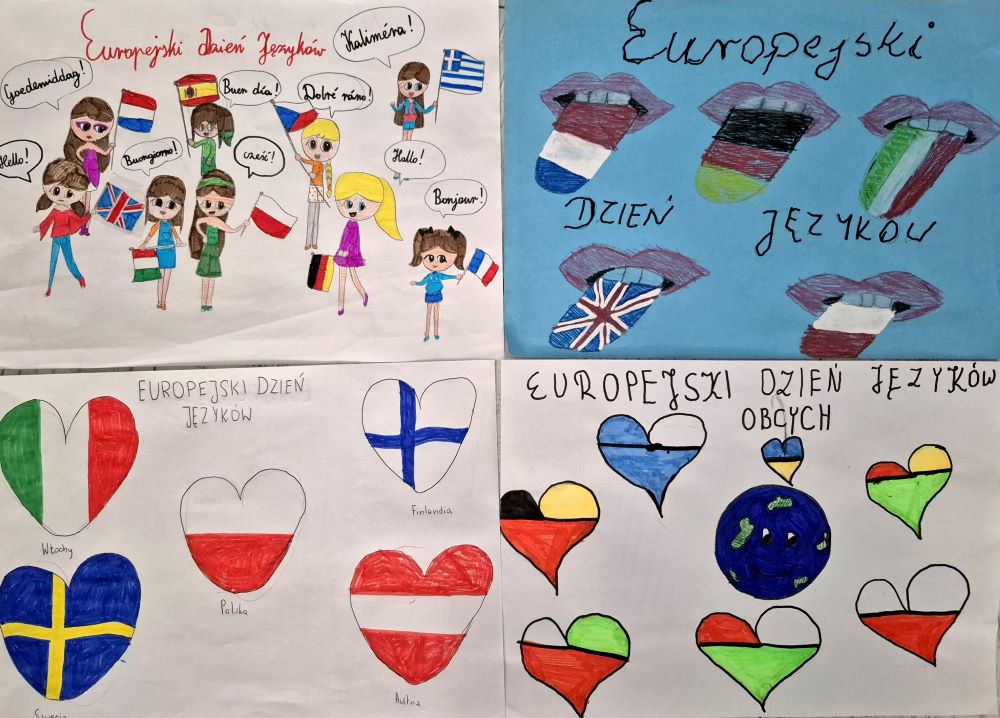 Europejski Dzień Języków
Kaliméra!
Goedemiddag!
Buen día!
Dobré ráno!
Hello!
Buongiorno!
cześć!
Hallo!
Bonjour!
Europejski
DZIEŃ JĘZYKÓW
EUROPEJSKI DZIEŃ
JĘZYKÓW
Włochy
Finlandia
Polska
Szwecja
Austria
EUROPEJSKI DZIEŃ JĘZYKÓW
OBCYCH